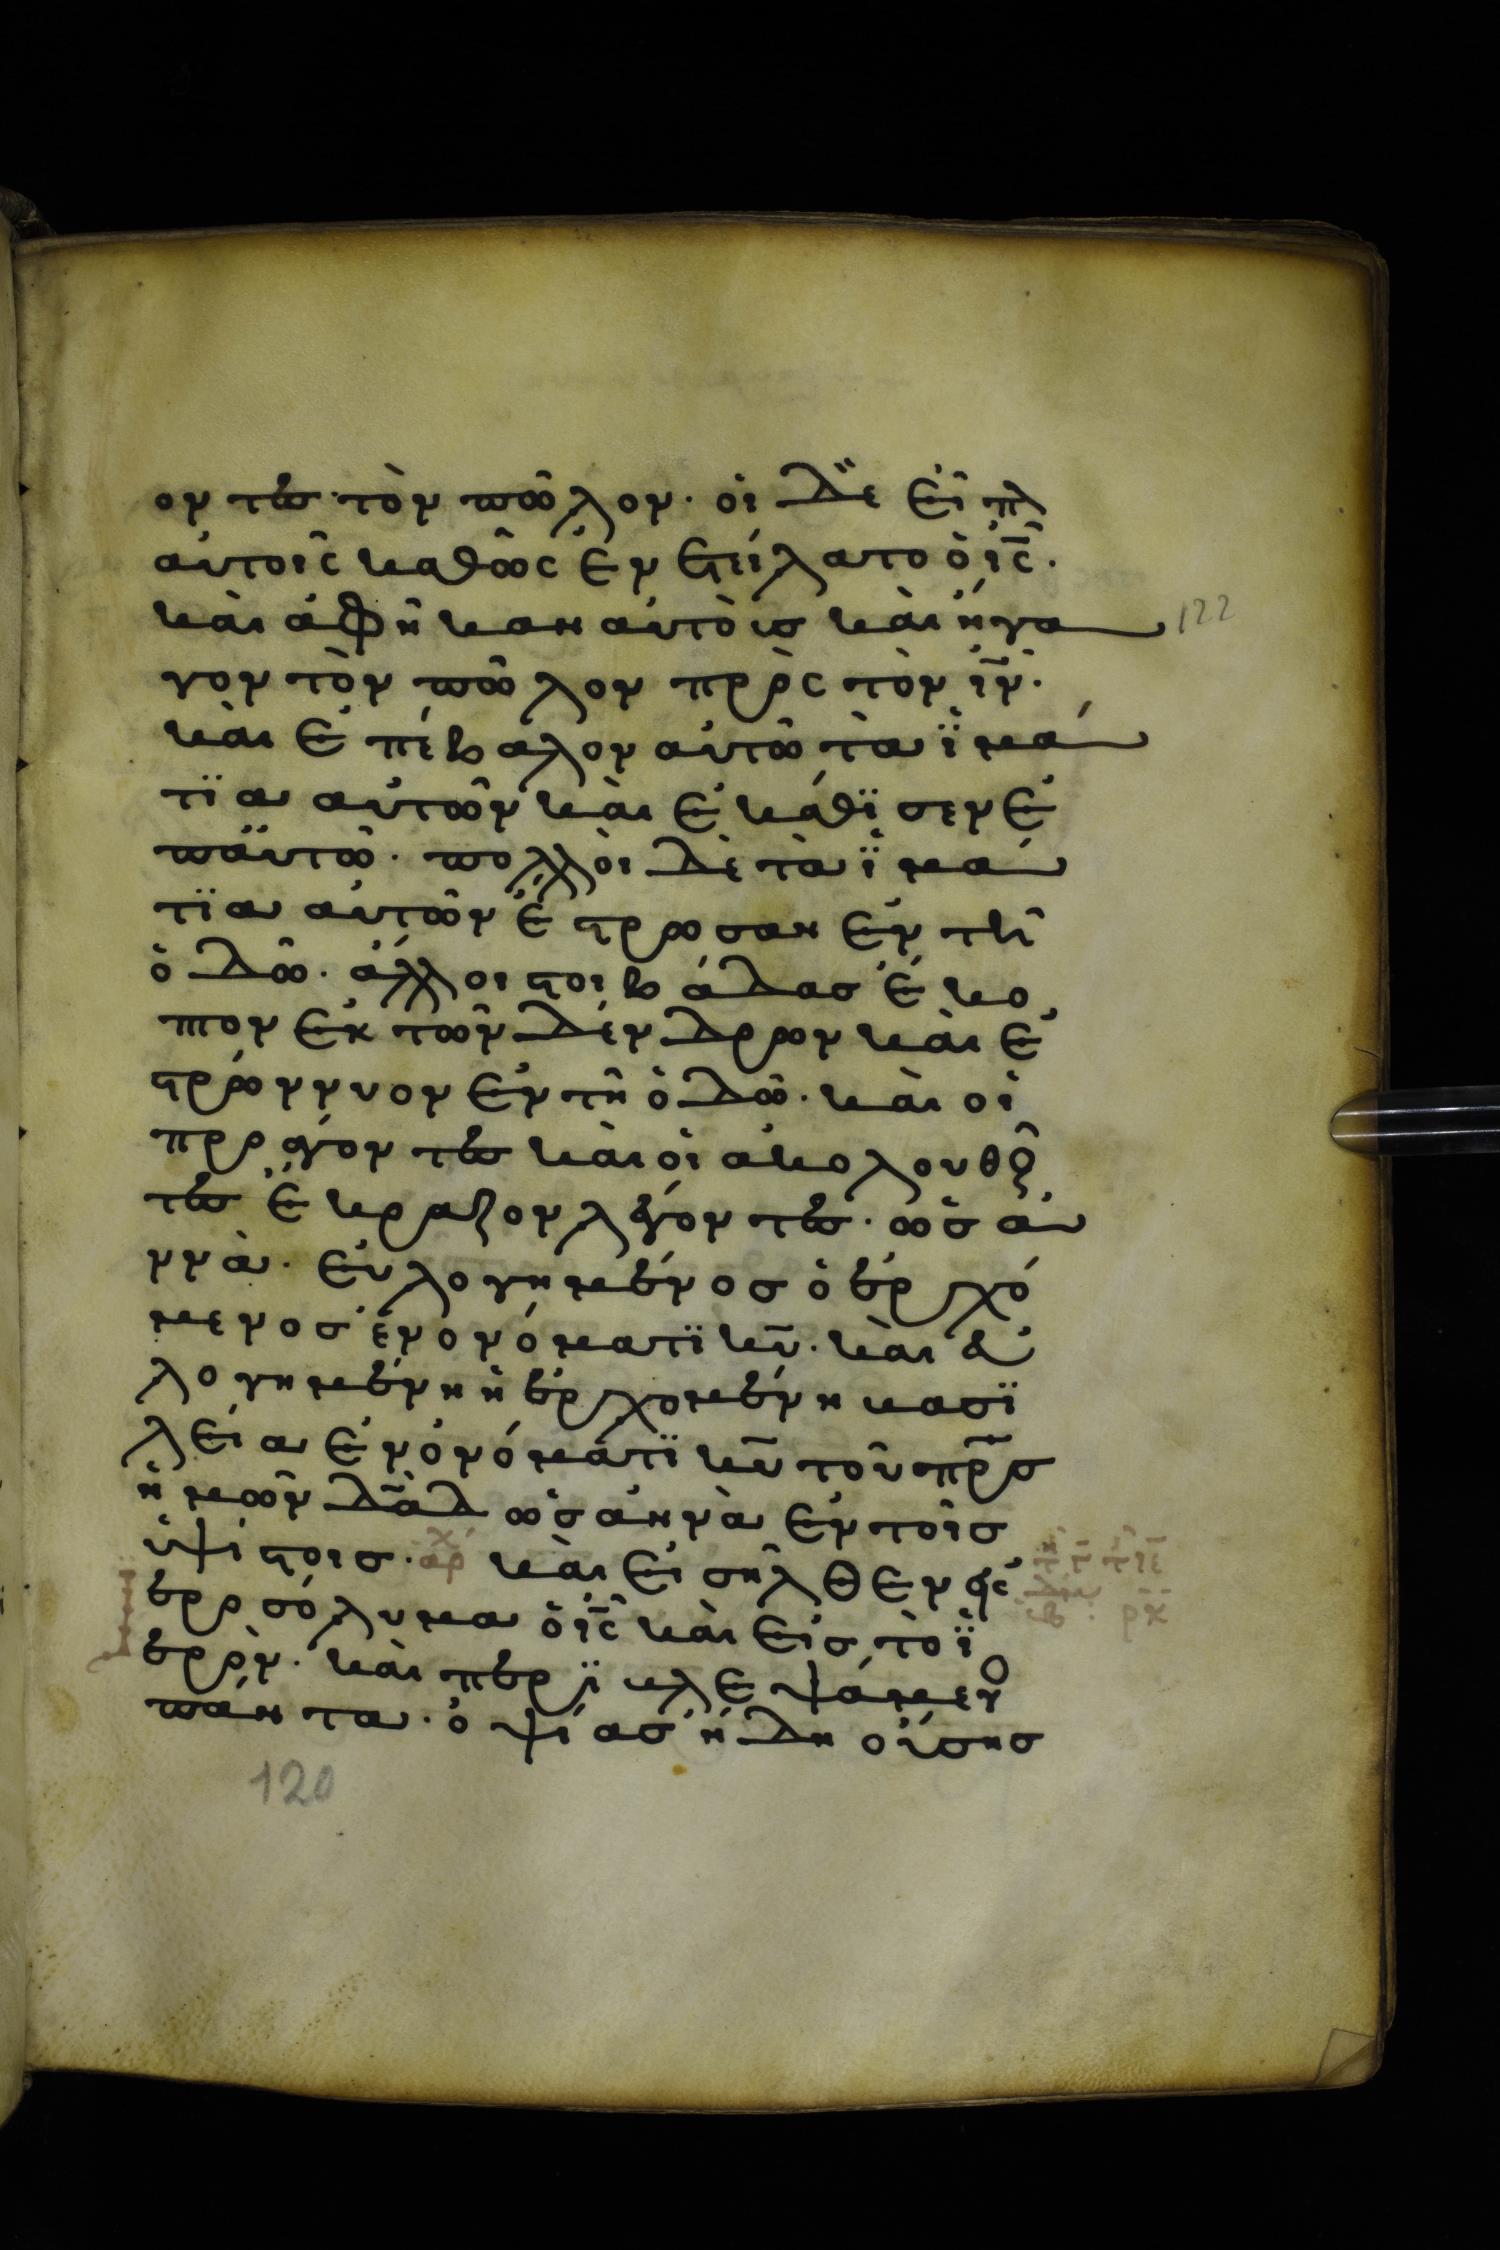 οντες τὸν πῶλον· οἱ δὲ εἶπ̅
αὐτοῖς καθῶς ἐνετείλατο ὁ ι̅ς̅·
καὶ ἀφῆκαν αὐτοὶς καὶ ἤγα
γον τὸν πῶλον πρὸς τὸν ι̅ν̅·
122
καὶ ἐπέβαλον αὐτῶ τὰ ἱμά
τϊα αὐτῶν καὶ ἐκάθϊσεν ἐ
πἀυτῶ· πολλοὶ δὲ τὰ ἱμά
τϊα αὐτῶν ἔστρωσαν ἐν τῆ
ὁδῶ· ἄλλοι στοιβάδας ἔκο
πτον ἐκ τῶν δένδρων καὶ ἐ
στρώννυον ἐν τῆ ὁδῶ· καὶ οἱ
προάγοντες καὶ οἱ ἀκολουθοῦ
τες ἔκραζον λέγοντες· ὡσἀ
ννὰ· εὐλογημένος ὁ ἐρχό
μενος ἐν ονόματϊ κ̅υ̅· καὶ εὐ
λογημένη ἡ ἐρχομένη βασϊ
λεία ἐν ὀνόματϊ κ̅υ̅ τοῦ π̅ρ̅ς
ἡμῶν δ̅α̅δ̅ ὡσἀννὰ ἐν τοῖς
ὑψίστοις· ἀρχ καὶ εἰσῆλθεν εἰς
ἱεροσόλυμα ὁ ι̅ς̅ καὶ εἰς τὸ ἱ
ερὸν· καὶ περϊβλεψάμενο
πάντα· ὀψίας ἤδη οὔσης
120